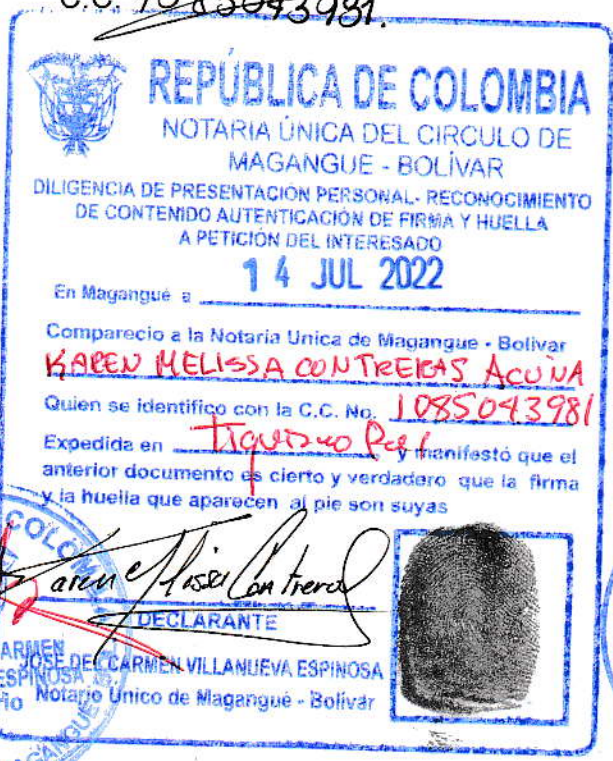 C.C. 1085043981.
REPÚBLICA DE COLOMBIA
NOTARIA ÚNICA DEL CIRCULO DE
MAGANGUE - BOLÍVAR
DILIGENCIA DE PRESENTACIÓN PERSONAL- RECONOCIMIENTO
DE CONTENIDO AUTENTICACIÓN DE FIRMA Y HUELLA
A PETICIÓN DEL INTERESADO
En Magangué a 14 JUL 2022
Comparecio a la Notaria Unica de Magangue - Bolivar
KAREN MELISSA CONTRERAS ACUÑA
Quien se identifico con la C.C. No. 1085043981
Expedida en y manifestó que el
anterior documento es cierto y verdadero que la firma
y la huella que aparecen al pie son suyas
COLOMBIA
Karen Melissa Contreras
DECLARANTE
CARMEN
JOSE DEL CARMEN VILLANUEVA ESPINOSA
ESPINOSA
Notario Unico de Magangué - Bolivar
MAGANGUE